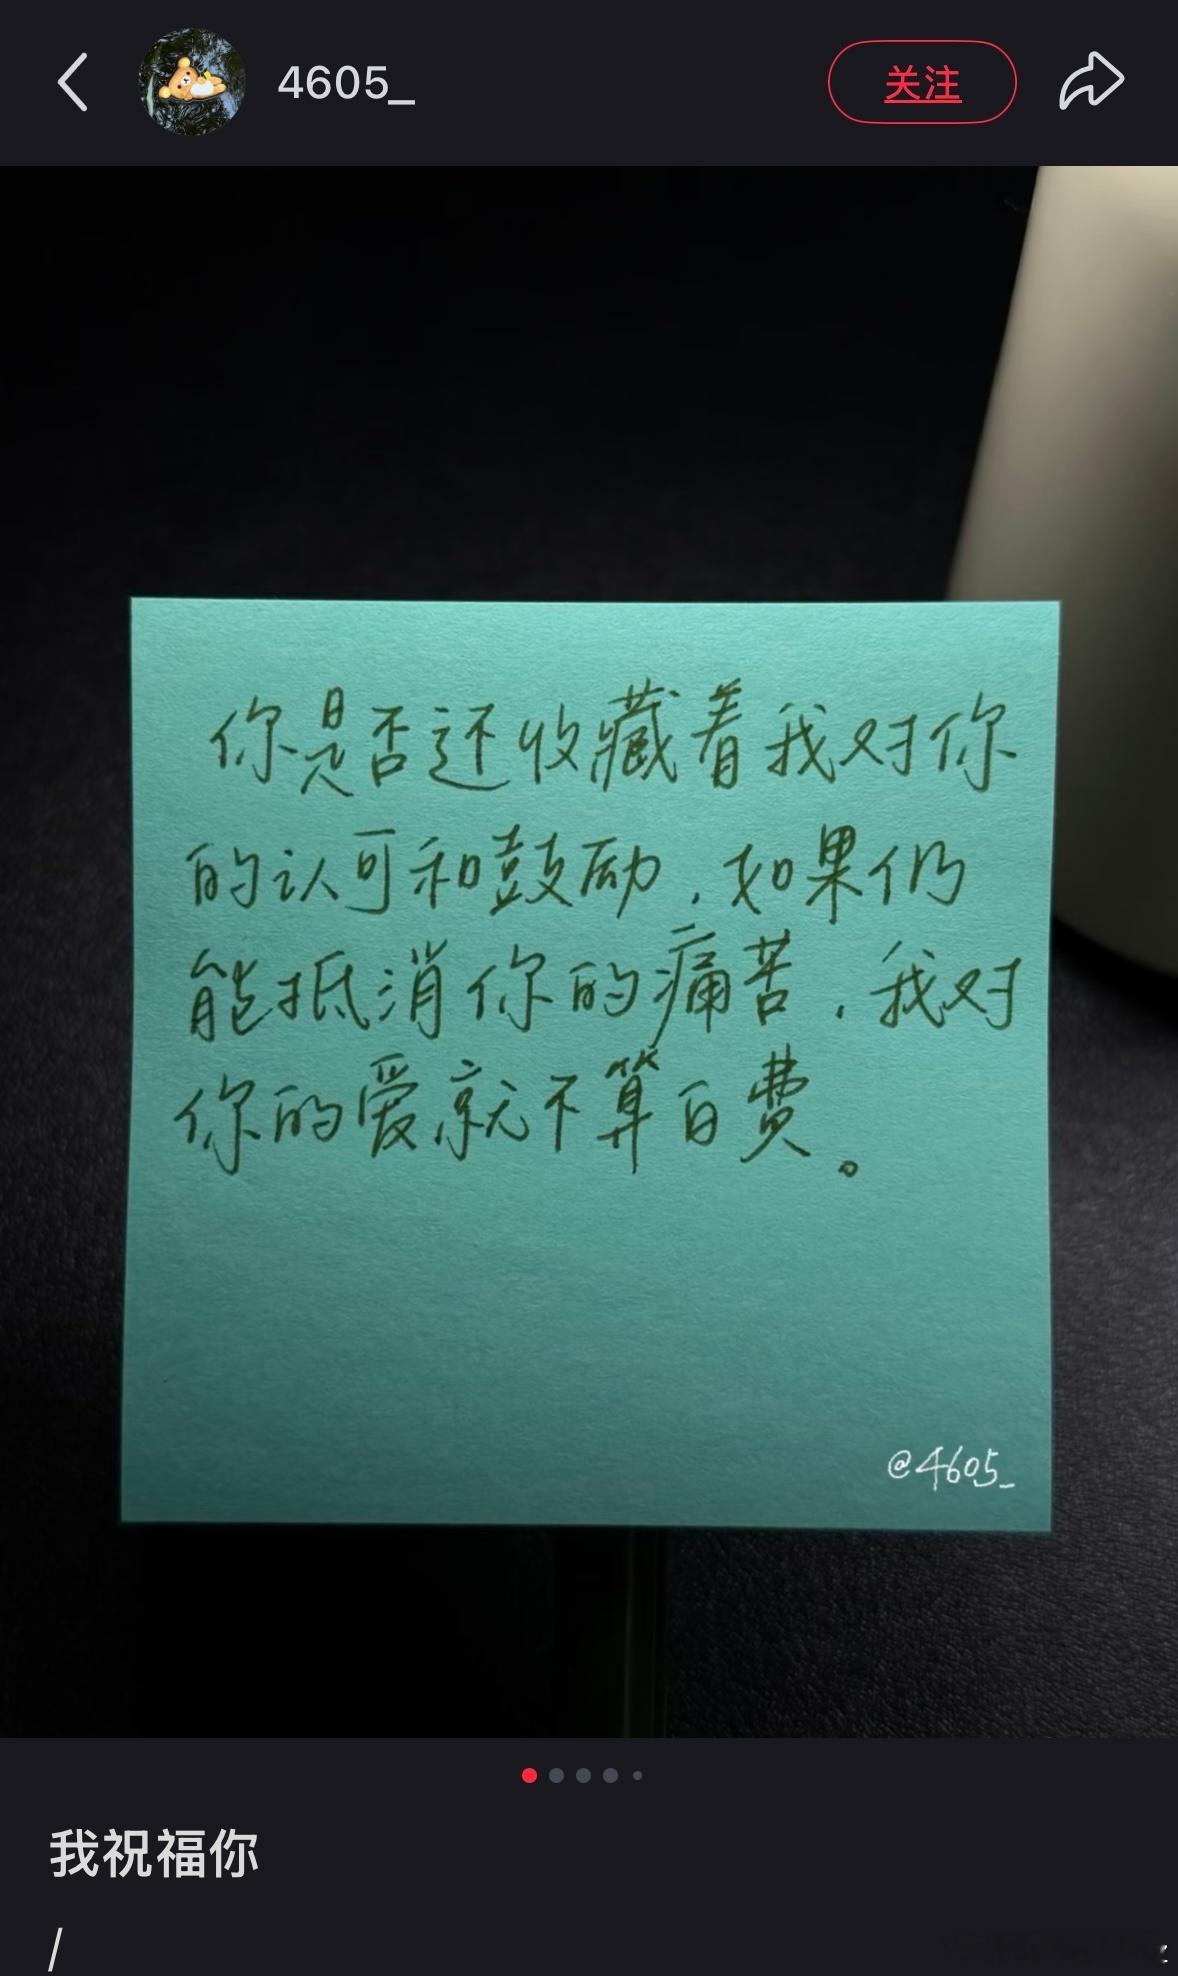 4605_
关注
你是否还收藏着我对你
的认可和鼓励，如果仍
能抵消你的痛苦，我对
你的爱就不算白费。
@4605_
我祝福你
/